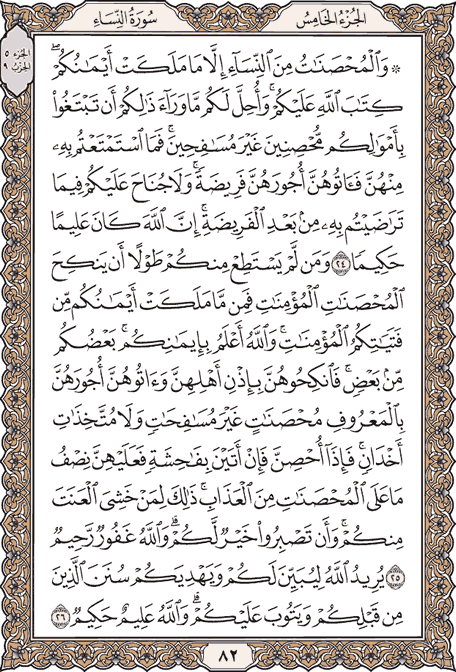 الجُزْءُ الخَامِسُ سُورَةُ النِّسَاءِ
الجزء ٥
الحزب ٩
۞ وَٱلْمُحْصَنَٰتُ مِنَ ٱلنِّسَآءِ إِلَّا مَا مَلَكَتْ أَيْمَٰنُكُمْۖ
كِتَٰبَ ٱللَّهِ عَلَيْكُمْۚ وَأُحِلَّ لَكُم مَّا وَرَآءَ ذَٰلِكُمْ أَن تَبْتَغُوا۟
بِأَمْوَٰلِكُم مُّحْصِنِينَ غَيْرَ مُسَٰفِحِينَۚ فَمَا ٱسْتَمْتَعْتُم بِهِۦ
مِنْهُنَّ فَـَٔاتُوهُنَّ أُجُورَهُنَّ فَرِيضَةًۚ وَلَا جُنَاحَ عَلَيْكُمْ فِيمَا
تَرَٰضَيْتُم بِهِۦ مِنۢ بَعْدِ ٱلْفَرِيضَةِۚ إِنَّ ٱللَّهَ كَانَ عَلِيمًا
حَكِيمًا ٢٤ وَمَن لَّمْ يَسْتَطِعْ مِنكُمْ طَوْلًا أَن يَنكِحَ
ٱلْمُحْصَنَٰتِ ٱلْمُؤْمِنَٰتِ فَمِن مَّا مَلَكَتْ أَيْمَٰنُكُم مِّن
فَتَيَٰتِكُمُ ٱلْمُؤْمِنَٰتِۚ وَٱللَّهُ أَعْلَمُ بِإِيمَٰنِكُمۚ بَعْضُكُم
مِّنۢ بَعْضٍۚ فَٱنكِحُوهُنَّ بِإِذْنِ أَهْلِهِنَّ وَءَاتُوهُنَّ أُجُورَهُنَّ
بِٱلْمَعْرُوفِ مُحْصَنَٰتٍ غَيْرَ مُسَٰفِحَٰتٍ وَلَا مُتَّخِذَٰتِ
أَخْدَانٍۚ فَإِذَآ أُحْصِنَّ فَإِنْ أَتَيْنَ بِفَٰحِشَةٍ فَعَلَيْهِنَّ نِصْفُ
مَا عَلَى ٱلْمُحْصَنَٰتِ مِنَ ٱلْعَذَابِۚ ذَٰلِكَ لِمَنْ خَشِىَ ٱلْعَنَتَ
مِنكُمْۚ وَأَن تَصْبِرُوا۟ خَيْرٌ لَّكُمْۗ وَٱللَّهُ غَفُورٌ رَّحِيمٌ
٢٥ يُرِيدُ ٱللَّهُ لِيُبَيِّنَ لَكُمْ وَيَهْدِيَكُمْ سُنَنَ ٱلَّذِينَ
مِن قَبْلِكُمْ وَيَتُوبَ عَلَيْكُمْۗ وَٱللَّهُ عَلِيمٌ حَكِيمٌ ٢٦
٨٢